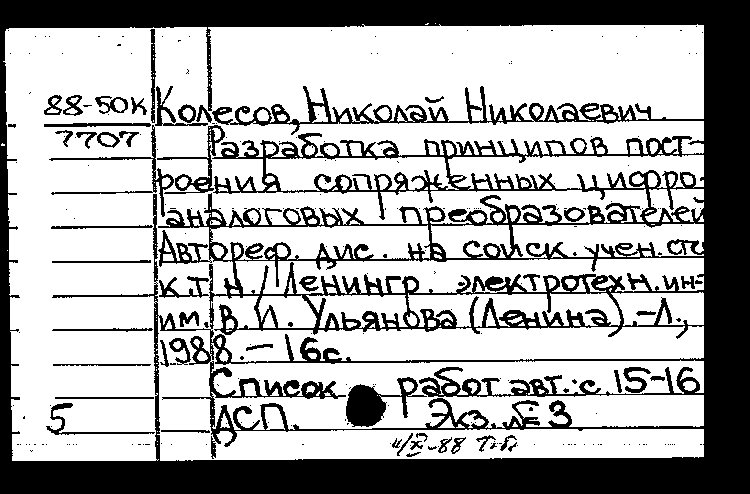 88-50К Колесов, Николай Николаевич.
7707 Разработка принципов пост-
роения сопряженных цифро-
аналоговых преобразователей
Автореф. дис. на соиск. учен. сте
к.т.н. / Ленингр. электротехн. ин-т
им. В. И. Ульянова (Ленина). – Л.,
1988. – 16с.
Список работ авт.: с. 15-16
5 ДСП. Экз. № 3
-88